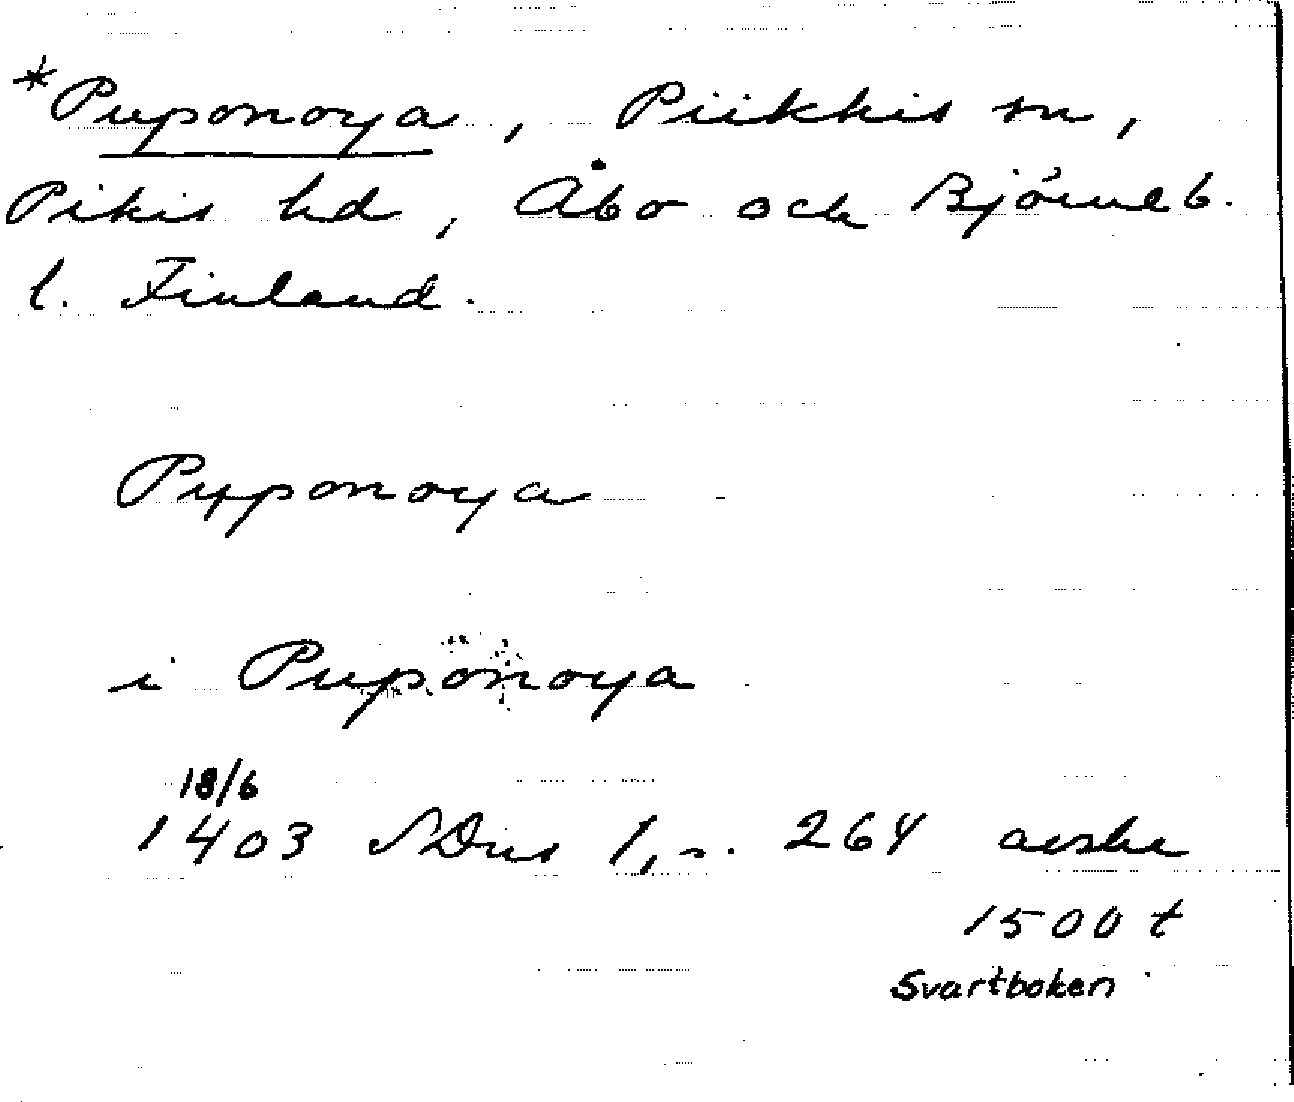 *Puponoya, Piikkis sn,
Pikis hd, Åbo och Björneb.
l. Finland.
Pypponoya
i Puponoya
18/6
1403 SDns 1, s. 264 avskr
1500 t
Svartboken